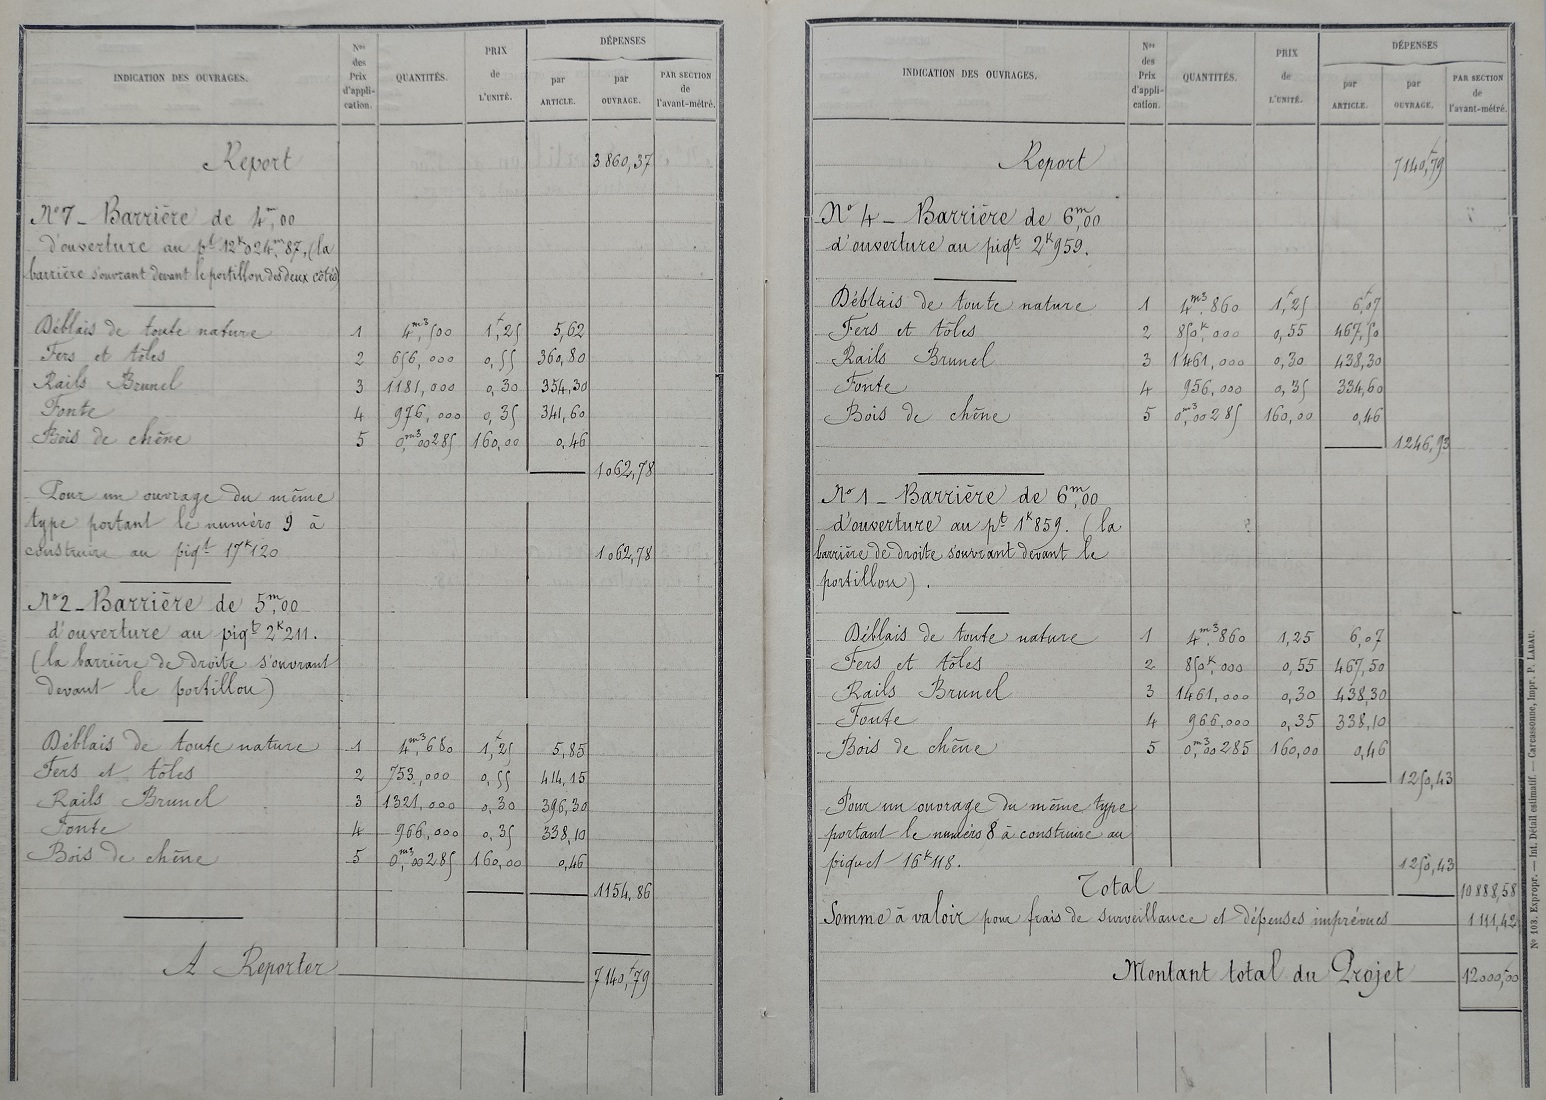 INDICATION DES OUVRAGES.
Nos des Prix d'application.
QUANTITÉS.
PRIX de L'UNITÉ.
DÉPENSES
par ARTICLE.
par OUVRAGE.
PAR SECTION de l'avant-métré.
Report 3860,37
N° 7 _ Barrière de 4m,00
d'ouverture au pt 12k024m,87, (la
barrière s'ouvrant devant le portillon des deux côtés)
Déblais de toute nature 1 4m3,500 1f,25 5,62
Fers et tôles 2 656,000 0,55 360,80
Rails Brunel 3 1181,000 0,30 354,30
Fonte 4 976,000 0,35 341,60
Bois de chêne 5 0m3,00285 160,00 0,46
1062,78
Pour un ouvrage du même
type portant le numéro 9 à
construire au piqt 17k120 1062,78
N° 2 _ Barrière de 5m,00
d'ouverture au piqt 2k211.
(la barrière de droite s'ouvrant
devant le portillon)
Déblais de toute nature 1 4m3,680 1f,25 5,85
Fers et tôles 2 753,000 0,55 414,15
Rails Brunel 3 1321,000 0,30 396,30
Fonte 4 966,000 0,35 338,10
Bois de chêne 5 0m3,00285 160,00 0,46
1154,86
A Reporter 7140f,79
INDICATION DES OUVRAGES.
Nos des Prix d'application.
QUANTITÉS.
PRIX de L'UNITÉ.
DÉPENSES
par ARTICLE.
par OUVRAGE.
PAR SECTION de l'avant-métré.
Report 7140f,79
N° 4 _ Barrière de 6m,00
d'ouverture au piqt 2k959.
Déblais de toute nature 1 4m3,860 1f,25 6f,07
Fers et tôles 2 850k,000 0,55 467,50
Rails Brunel 3 1461,000 0,30 438,30
Fonte 4 956,000 0,35 334,60
Bois de chêne 5 0m3,00285 160,00 0,46
1246,93
N° 1 _ Barrière de 6m,00
d'ouverture au pt 1k859. (la
barrière de droite s'ouvrant devant le
portillon).
Déblais de toute nature 1 4m3,860 1,25 6,07
Fers et tôles 2 850k,000 0,55 467,50
Rails Brunel 3 1461,000 0,30 438,30
Fonte 4 966,000 0,35 338,10
Bois de chêne 5 0m3,00285 160,00 0,46
1250,43
Pour un ouvrage du même type
portant le numéro 8 à construire au
piquet 16k118. 1250,43
Total 10888,58
Somme à valoir pour frais de surveillance et dépenses imprévues 1111,42
Montant total du Projet 12000f,00
N° 103. Expropr. — Int. Détail estimatif. — Carcassonne, Impr. P. LABAU.